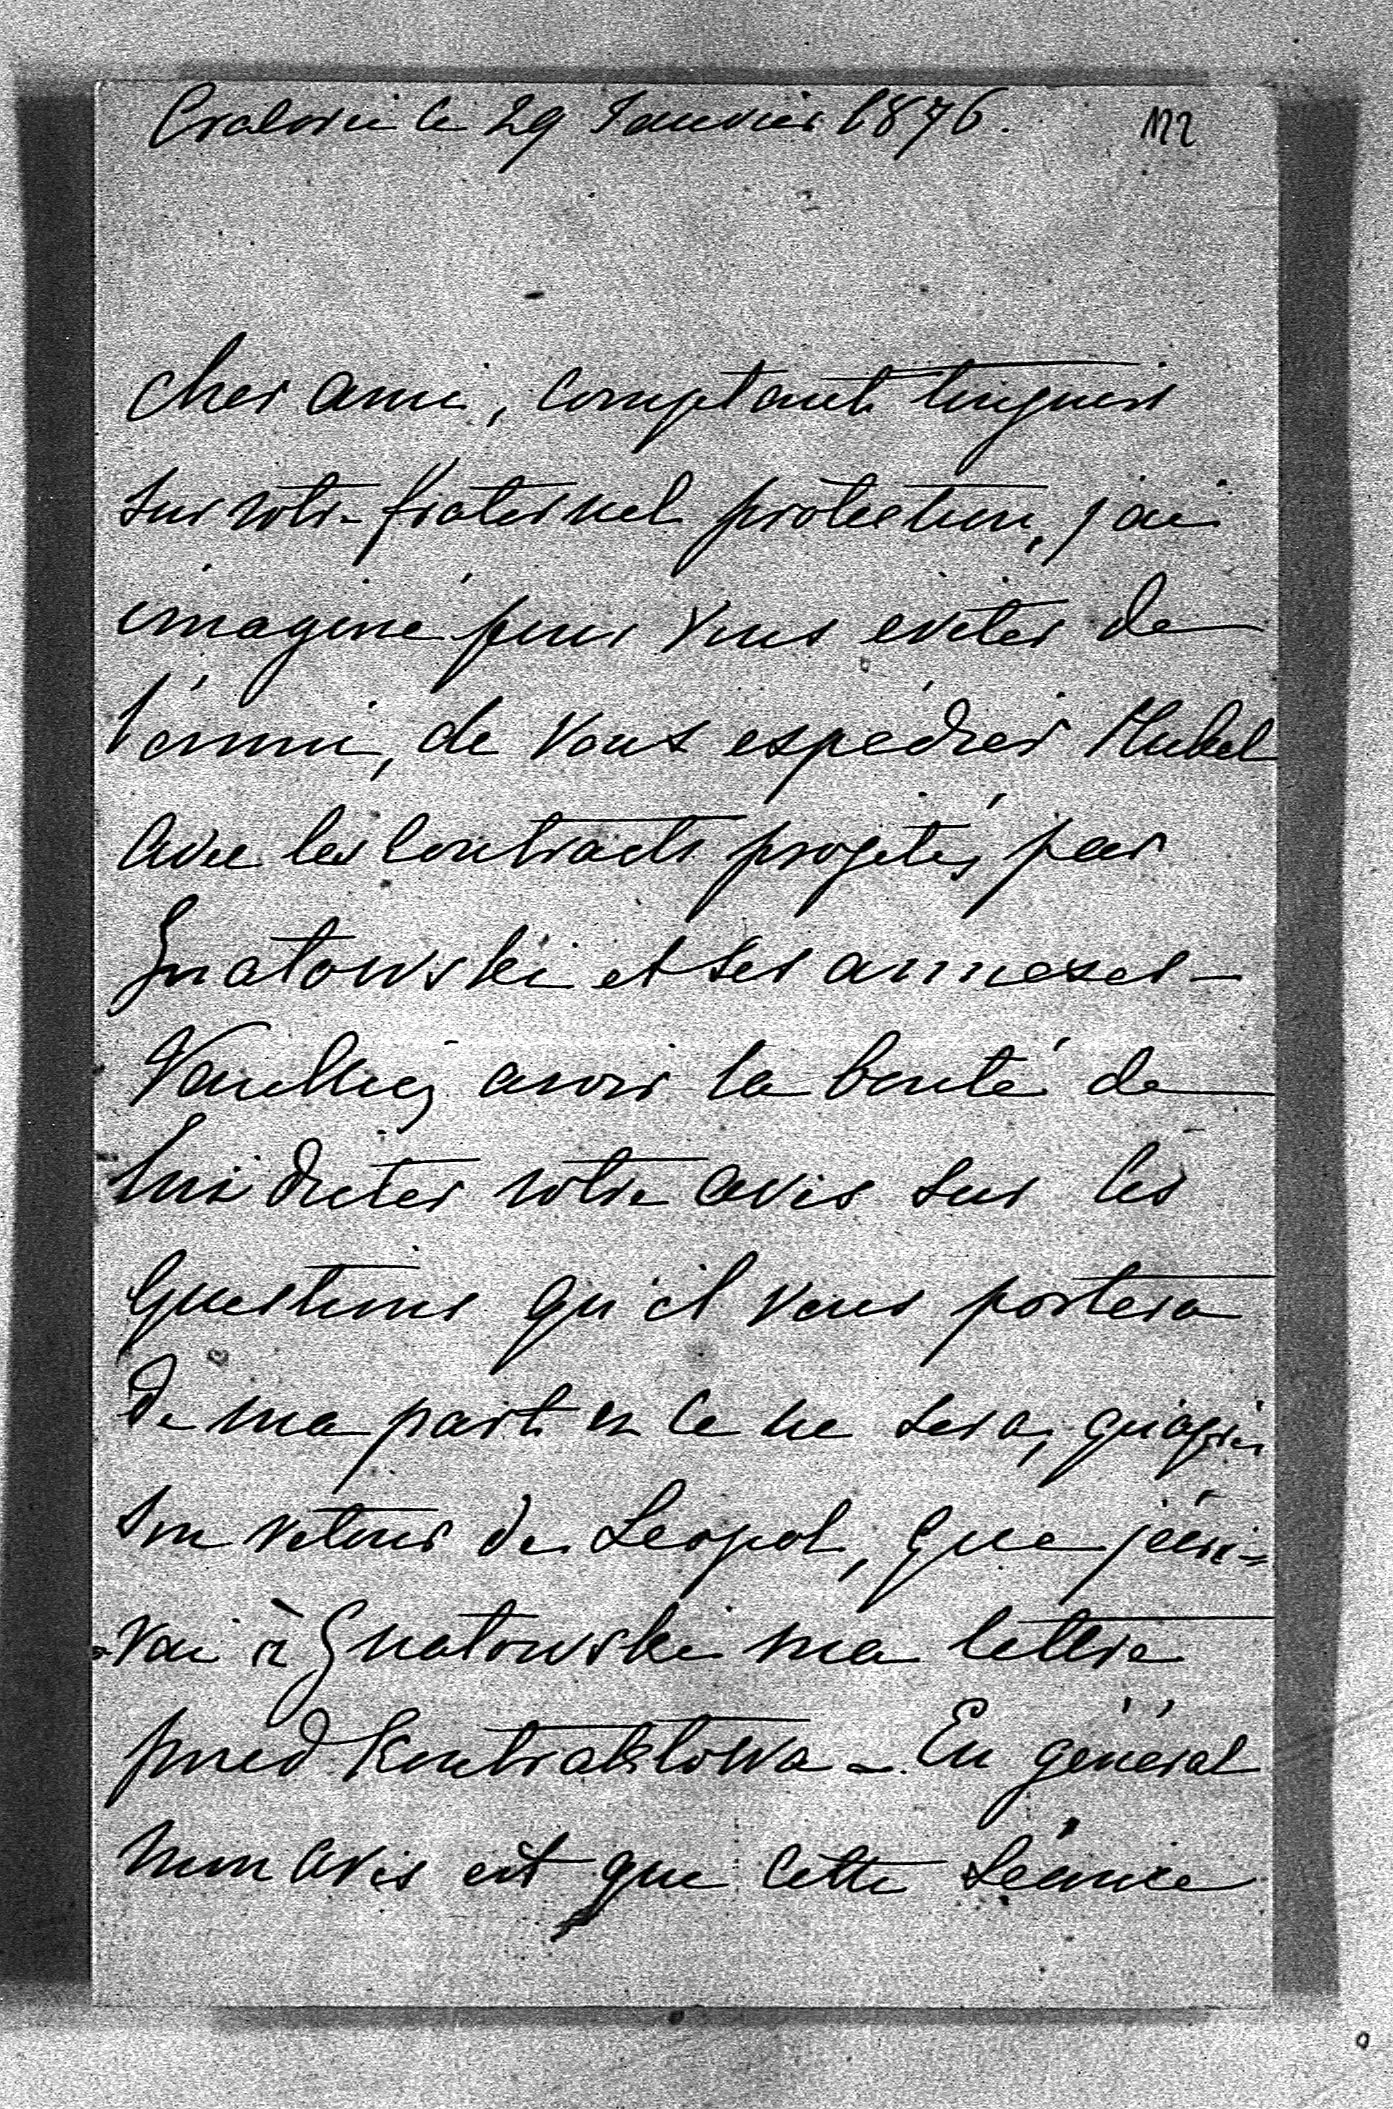 Cracovie le 29 Janvier 1876.
cher ami, comptant toujours
sur votre fraternel protection, j'ai
imaginé pour vous eviter de
l'ennui, de vous expédier
avec les contracts projetés par
Gnatowski et ses annexes –
Veuilliez avoir la bonté de
lui dicter votre avis sur les
questions qu'il vous portera
de ma part et ce ne sera, qu'après
son retour de Leopol, que j'écri=
=rai à Gnatowski ma lettre
przed kontraktowa – En général
mon avis est que cette séance